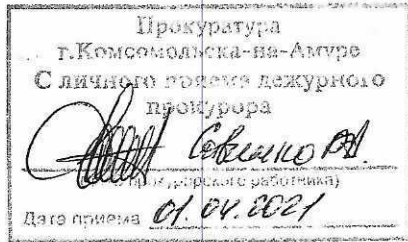 Прокуратура
г.Комсомольска-на-Амуре
С личного приема дежурного
прокурора
работника)
Дата приема 01.04.2021